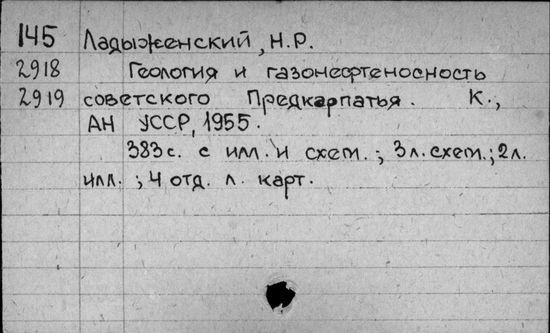 145 Ладыженский, Н.Р.
2918 Геология и газонефтеносность
2919 советского Предкарпатья. К.,
АН УССР, 1955.
383с. с илл. и схем.; 3л. схем.; 2л.
илл.; 4 отд. л. карт.